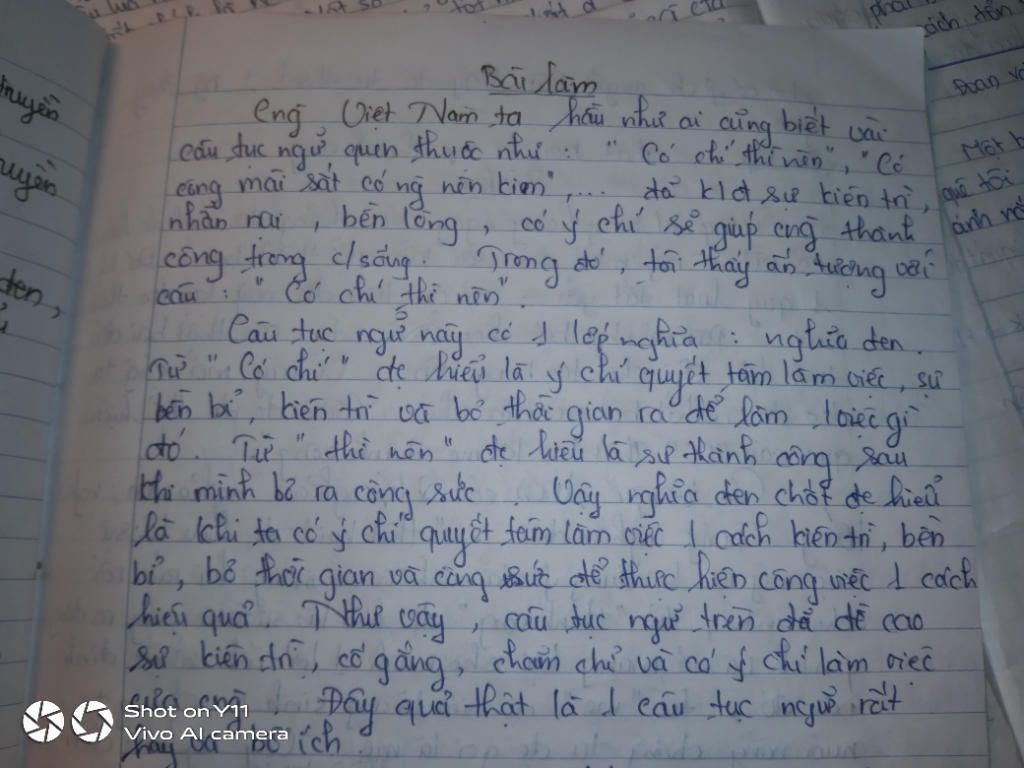 Bài làm
Cng Việt Nam ta hầu như ai cũng biết vài
câu tục ngữ quen thuộc như : " Có chí thì nên", "Có
công mài sắt có ng nên kim",... đã klđ sự kiên trì,
nhẫn nại , bền lòng , có ý chí sẽ giúp cng thành
công trong c/sống. Trong đó , tôi thấy ấn tượng với
câu : " Có chí thì nên".
Câu tục ngữ này có 1 lớp nghĩa : nghĩa đen.
Từ " Có chí " đc hiểu là ý chí quyết tâm làm việc, sự
bền bỉ, kiên trì và bỏ thời gian ra để làm 1 việc gì
đó. Từ " thì nên " đc hiểu là sự thành công sau
khi mình bỏ ra công sức . Vậy nghĩa đen chốt đc hiểu
là khi ta có ý chí quyết tâm làm việc 1 cách kiên trì, bền
bỉ, bỏ thời gian và công sức để thực hiện công việc 1 cách
hiệu quả. Như vậy , câu tục ngữ trên đã đề cao
sự kiên trì, cố gắng, chăm chỉ và có ý chí làm việc
của cng . Đây quả thật là 1 câu tục ngữ rất
hay và bổ ích.
truyền
uyền
đen,
phải
sách, tốn
Đoạn vă
Một b
quê tôi
ánh nă
Shot on Y11
Vivo AI camera